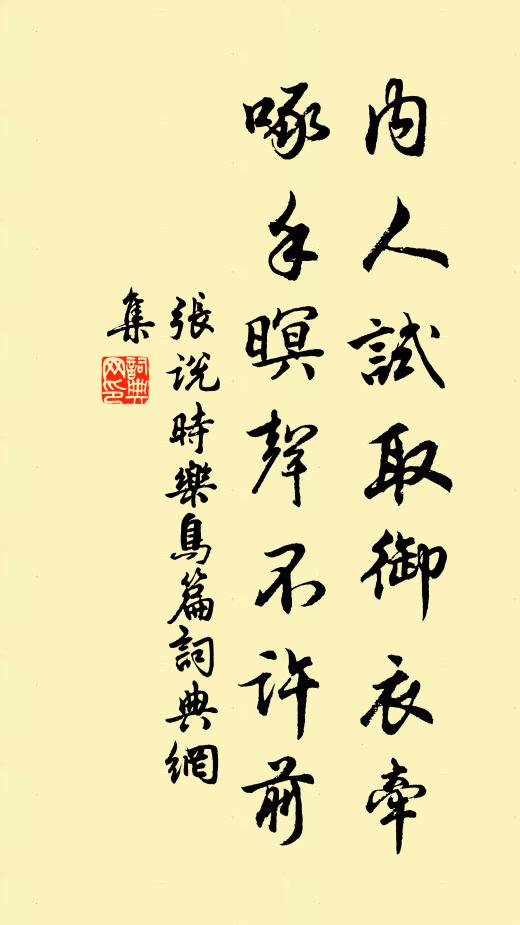 內人試取御衣牽
啄手暝聲不許前
張說時樂鳥篇詞典網
集
詞典
网印